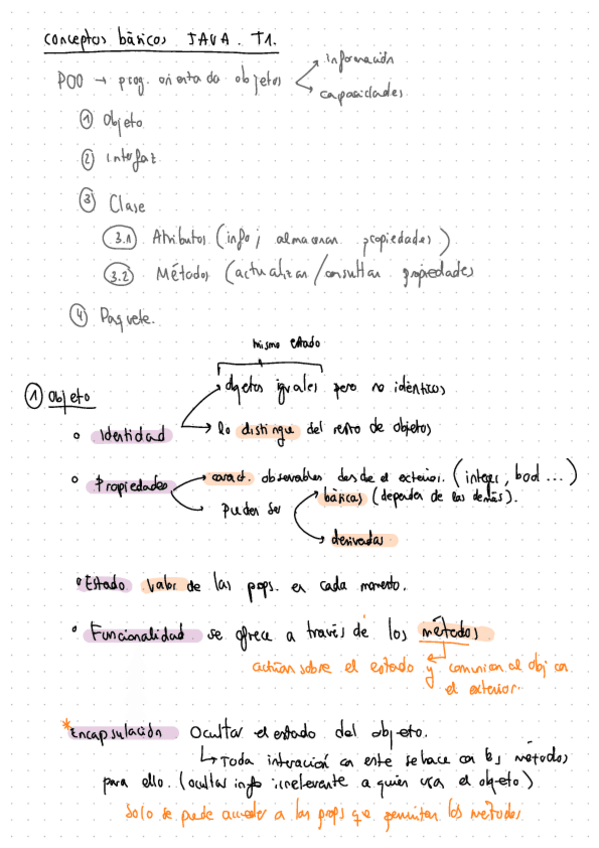 Conceptos básicos JAVA. T1.
POO → prog. orientada objetos
información
capacidades
① Objeto
② Interfaz
③ Clase
3.1 Atributos (info; almacenan propiedades)
3.2 Métodos (actualizar/consultar propiedades
④ Paquete.
mismo estado
① Objeto
objetos iguales pero no idénticos
• Identidad
lo distingue del resto de objetos
• Propiedades
caract. observables desde el exterior. (integer, bool ...)
pueden ser
básicas (dependen de las demás).
derivadas
• Estado valor de las props. en cada momento.
• Funcionalidad se ofrece a través de los métodos
actúan sobre el estado y comunican al obj con
el exterior.
* Encapsulación Ocultar el estado del objeto.
↳ Toda interacción con este se hace con los métodos
para ello. (ocultar info irrelevante a quien usa el objeto)
Solo se puede acceder a las props que permitan los métodos